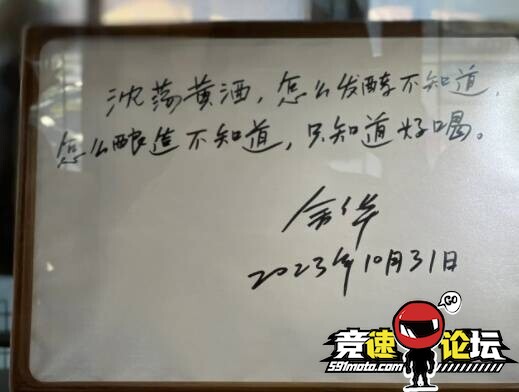 沈荡黄酒，怎么发酵不知道，
怎么酿造不知道，只知道好喝。
余华
2023年10月31日
GO
竞速论坛
591moto.com